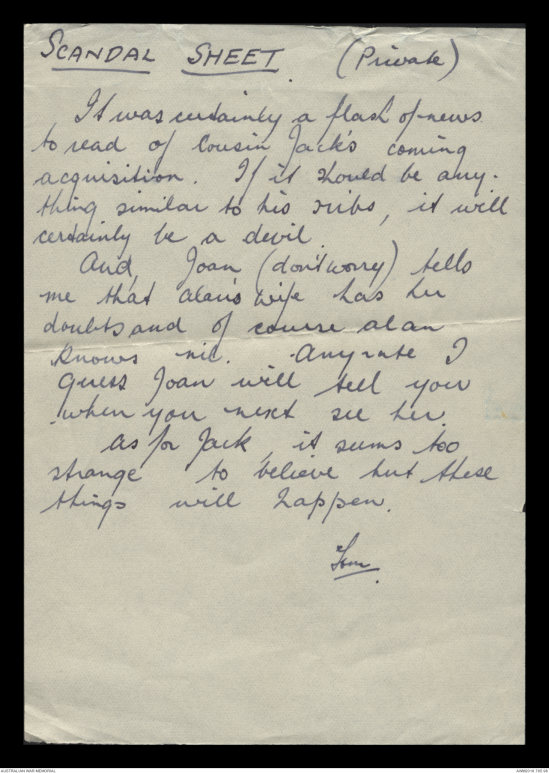 SCANDAL SHEET. (Private)
It was certainly a flash of news
to read of Cousin Jack's coming
acquisition. If it should be any-
thing similar to his sribs, it will
certainly be a devil.
And, Joan (don't worry) tells
me that Alan's wife has her
doubts and of course Alan
knows nic. Anyrate I
guess Joan will tell you
when you next see her.
As for Jack, it seems too
strange to believe but these
things will happen.
Tom.
AUSTRALIAN WAR MEMORIAL